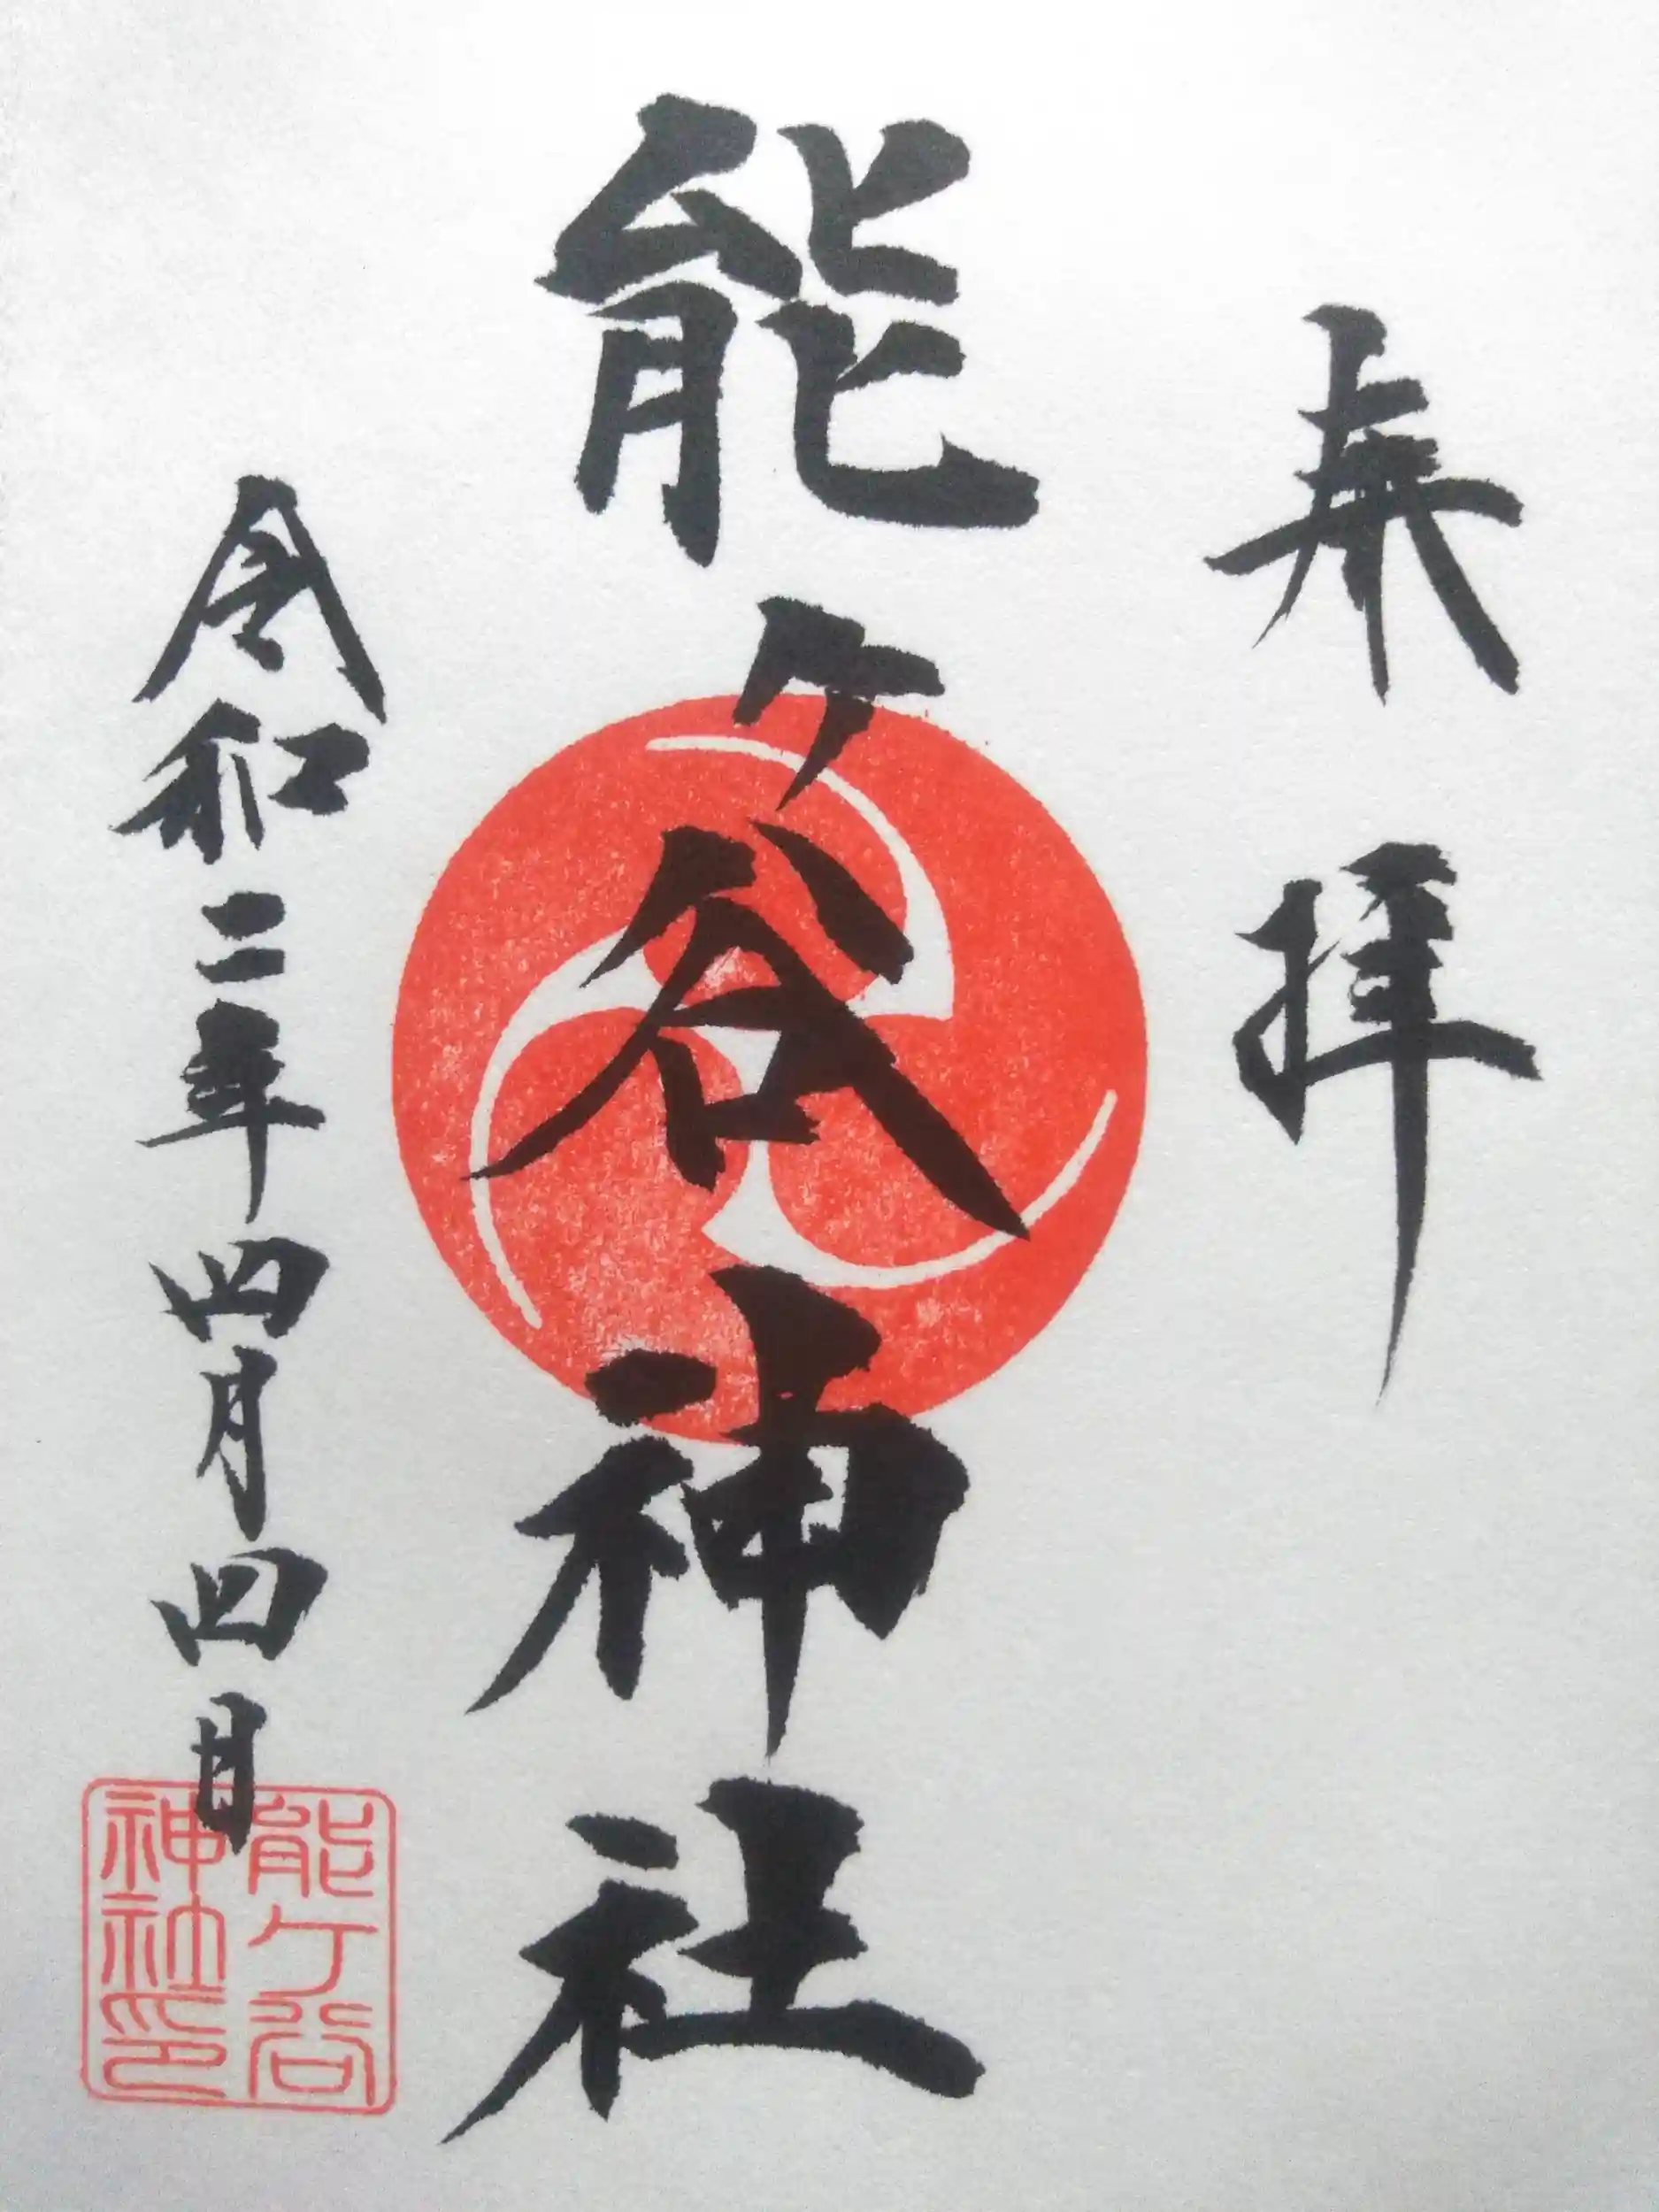 奉拝
能ケ谷神社
令和二年四月四日
能ケ谷
神社印